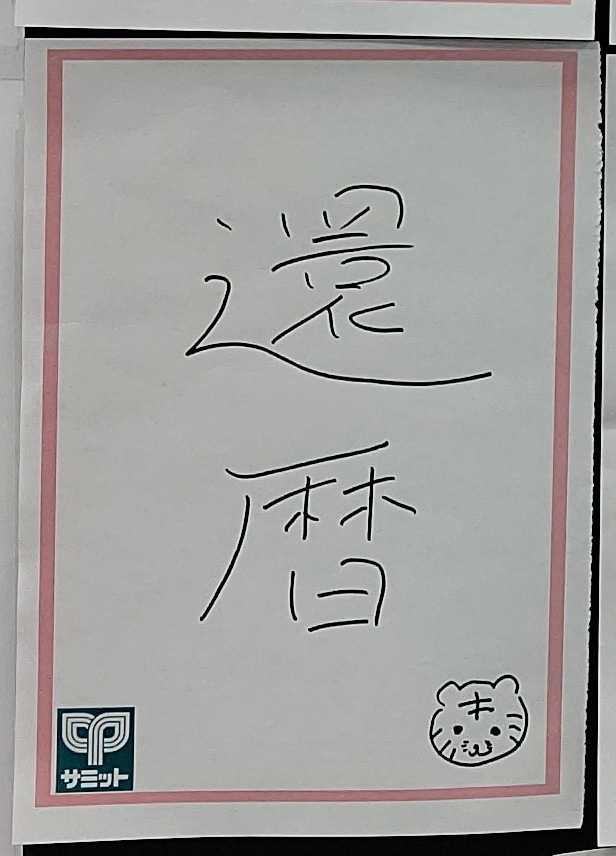 還
暦
サミット